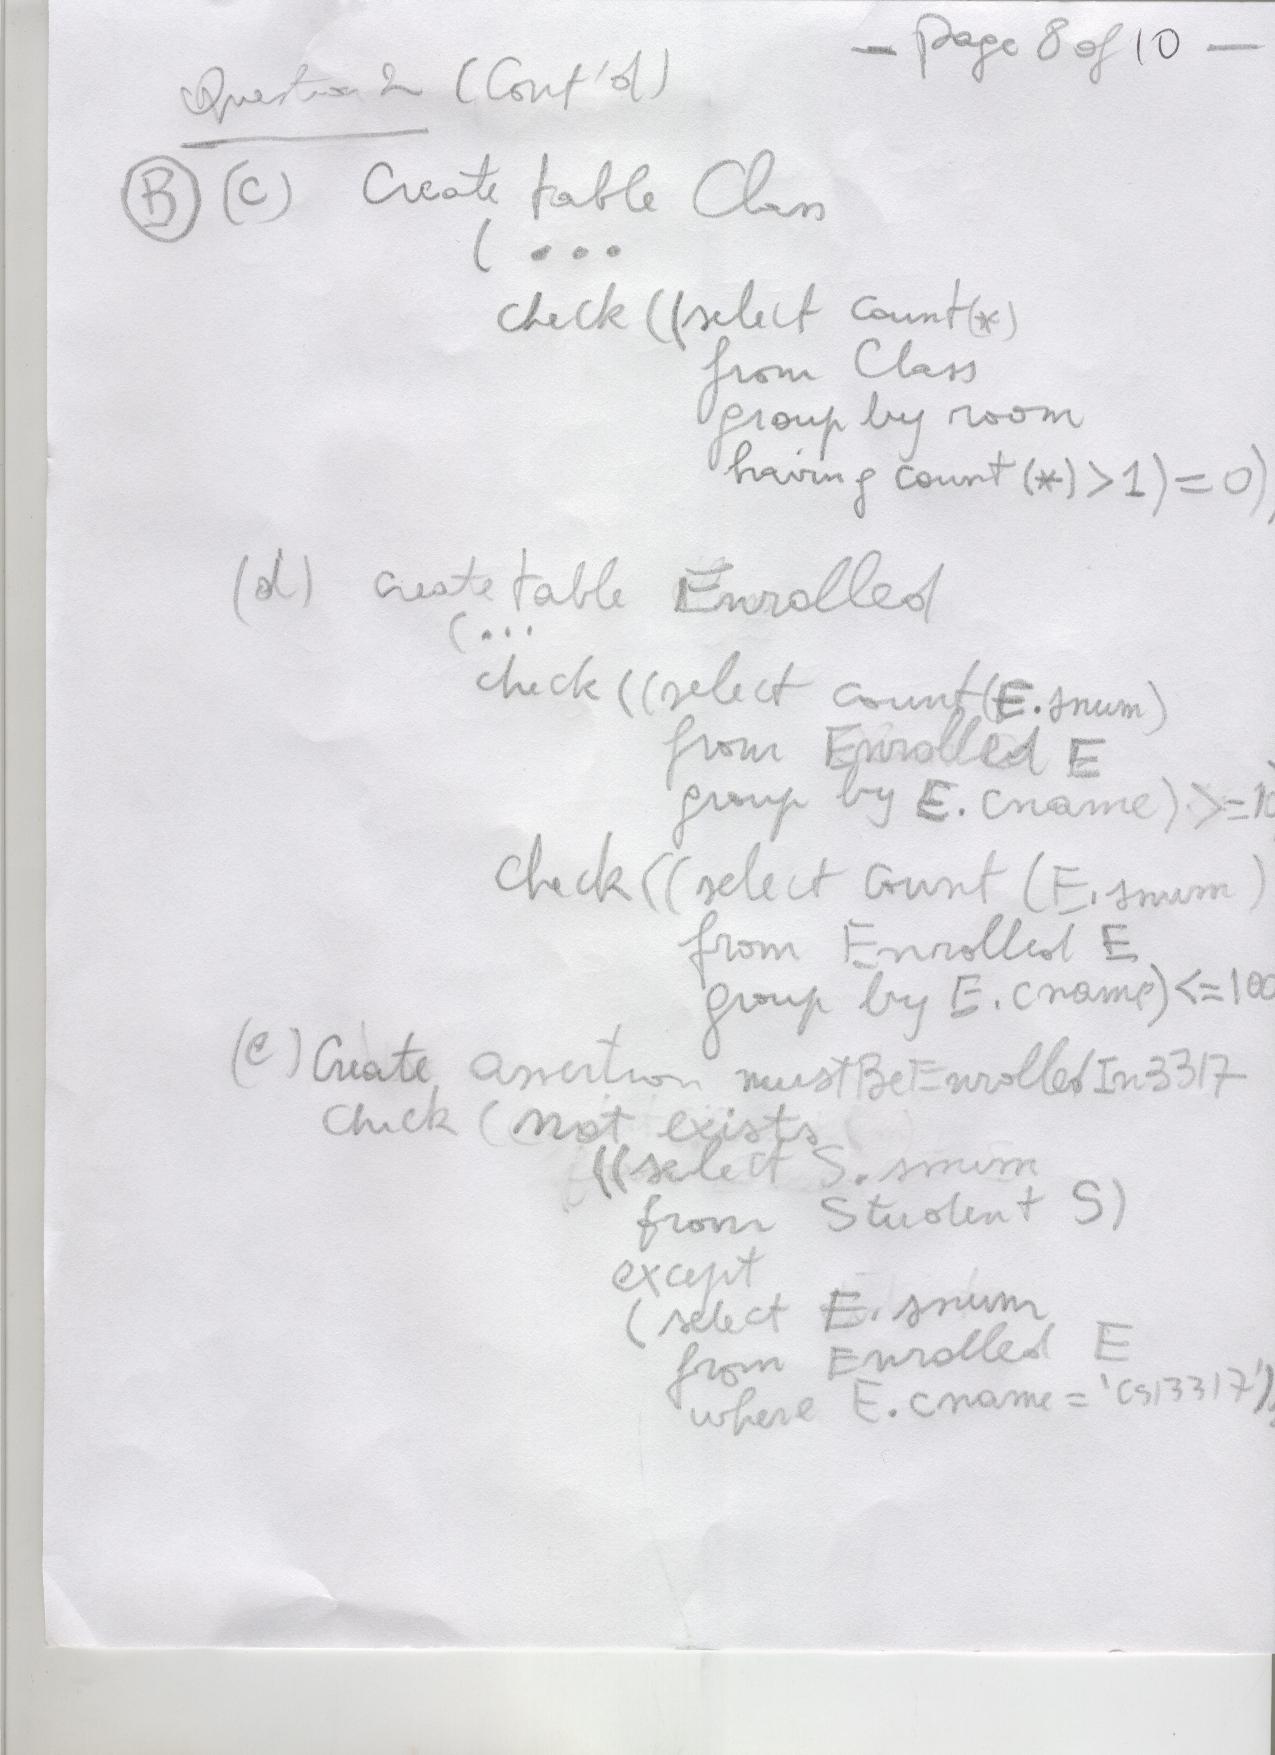 — Page 8 of 10 —
Question 2 (Cont'd)
(B) (c) Create table Class
( ...
check ((select count(*)
from Class
group by room
having count(*) > 1) = 0)
(d) create table Enrolled
( ...
check ((select count(E.snum)
from Enrolled E
group by E.cname) >= 10
check ((select count (E.snum)
from Enrolled E
group by E.cname) <= 100
(e) Create assertion mustBeEnrolledIn3317
check ( not exists
((select S.snum
from Student S)
except
(select E.snum
from Enrolled E
where E.cname = 'csi3317')